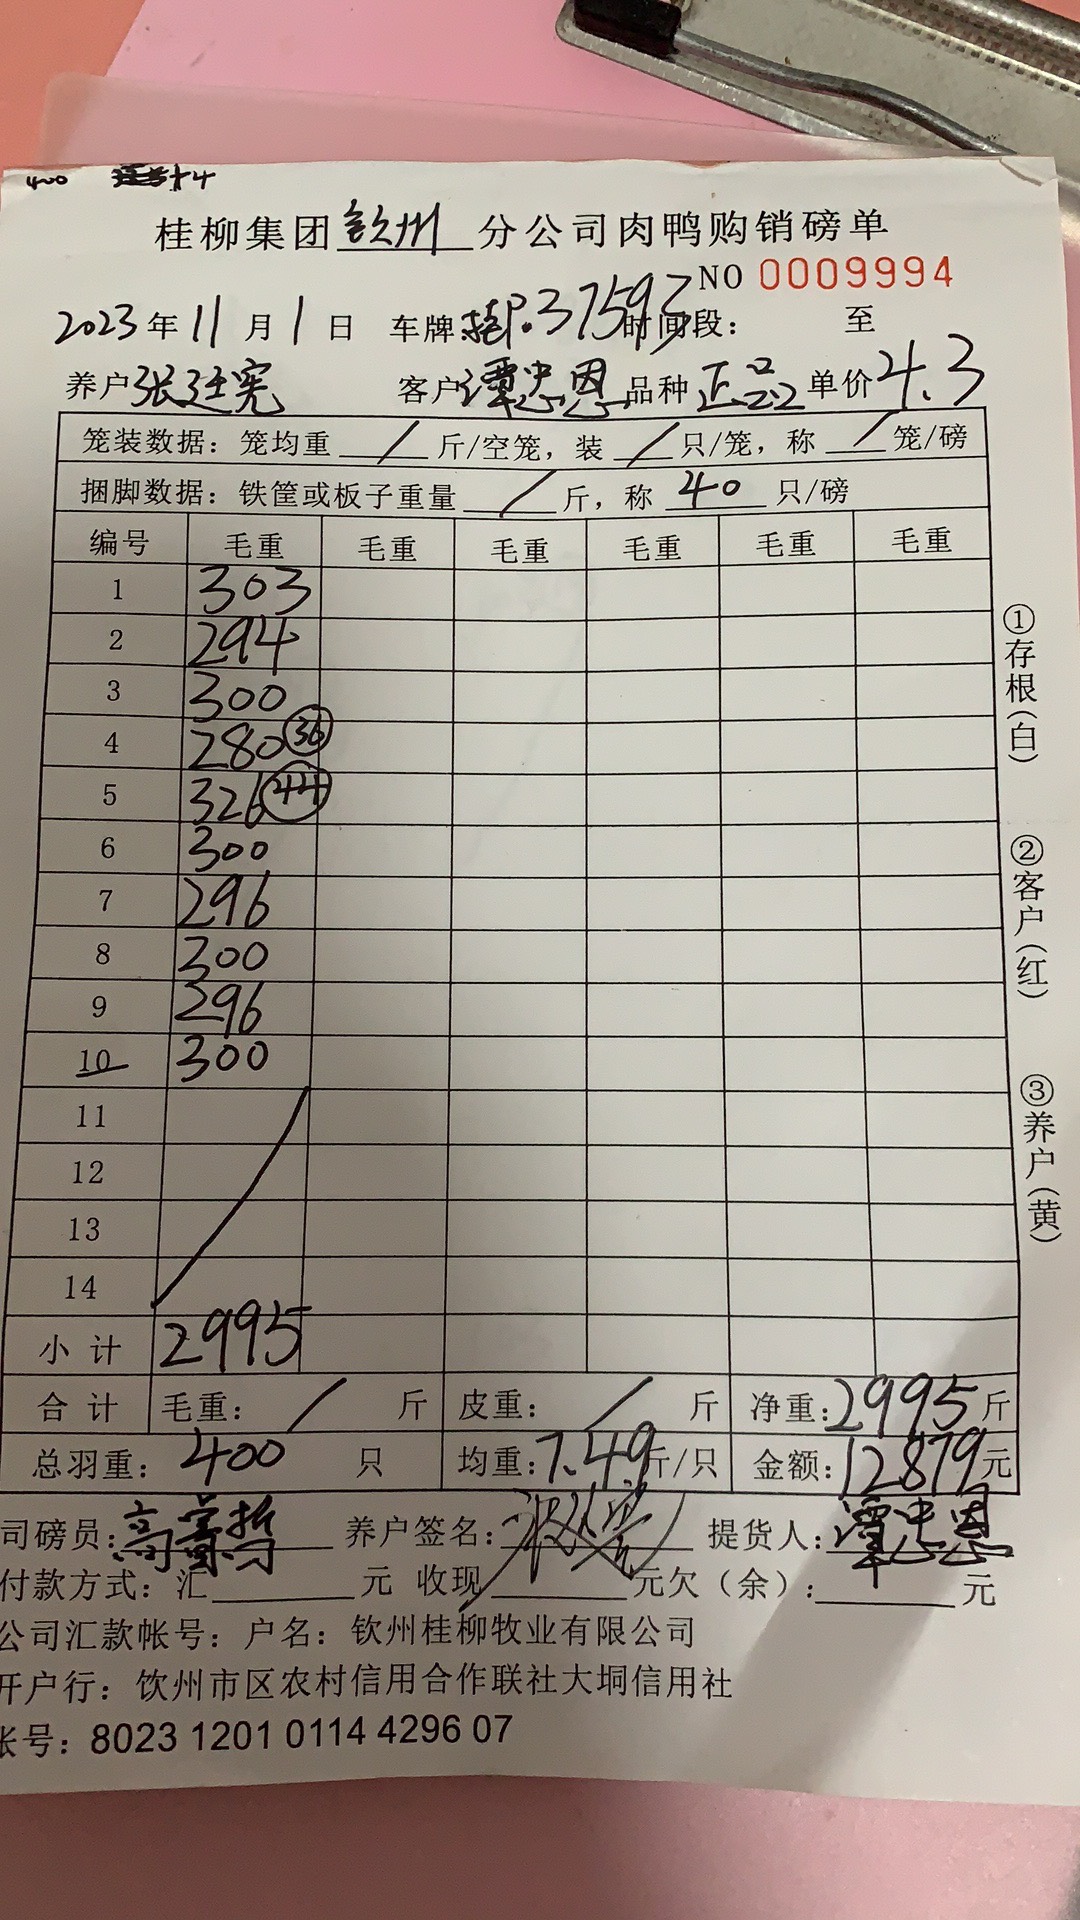 400
桂柳集团钦州分公司肉鸭购销磅单
NO 0009994
2023年11月1日 车牌: 37593 时间段: 至
养户张廷宪 客户谭忠恩 品种正品 单价4.3
笼装数据: 笼均重 / 斤/空笼, 装 / 只/笼, 称 / 笼/磅
捆脚数据: 铁筐或板子重量 / 斤, 称 40 只/磅
编号 毛重 毛重 毛重 毛重 毛重 毛重
1 303
2 294
3 300
4 280 36
5 326 44
6 300
7 296
8 300
9 296
10 300
11
12
13
14
小计 2995
合计 毛重: / 斤 皮重: / 斤 净重: 2995斤
总羽重: 400 只 均重: 7.49斤/只 金额: 12879元
司磅员: 养户签名: 提货人: 谭忠恩
付款方式: 汇 元 收现 元欠(余): 元
公司汇款帐号: 户名: 钦州桂柳牧业有限公司
开户行: 饮州市区农村信用合作联社大垌信用社
帐号: 8023 1201 0114 4296 07
①存根(白)
②客户(红)
③养户(黄)